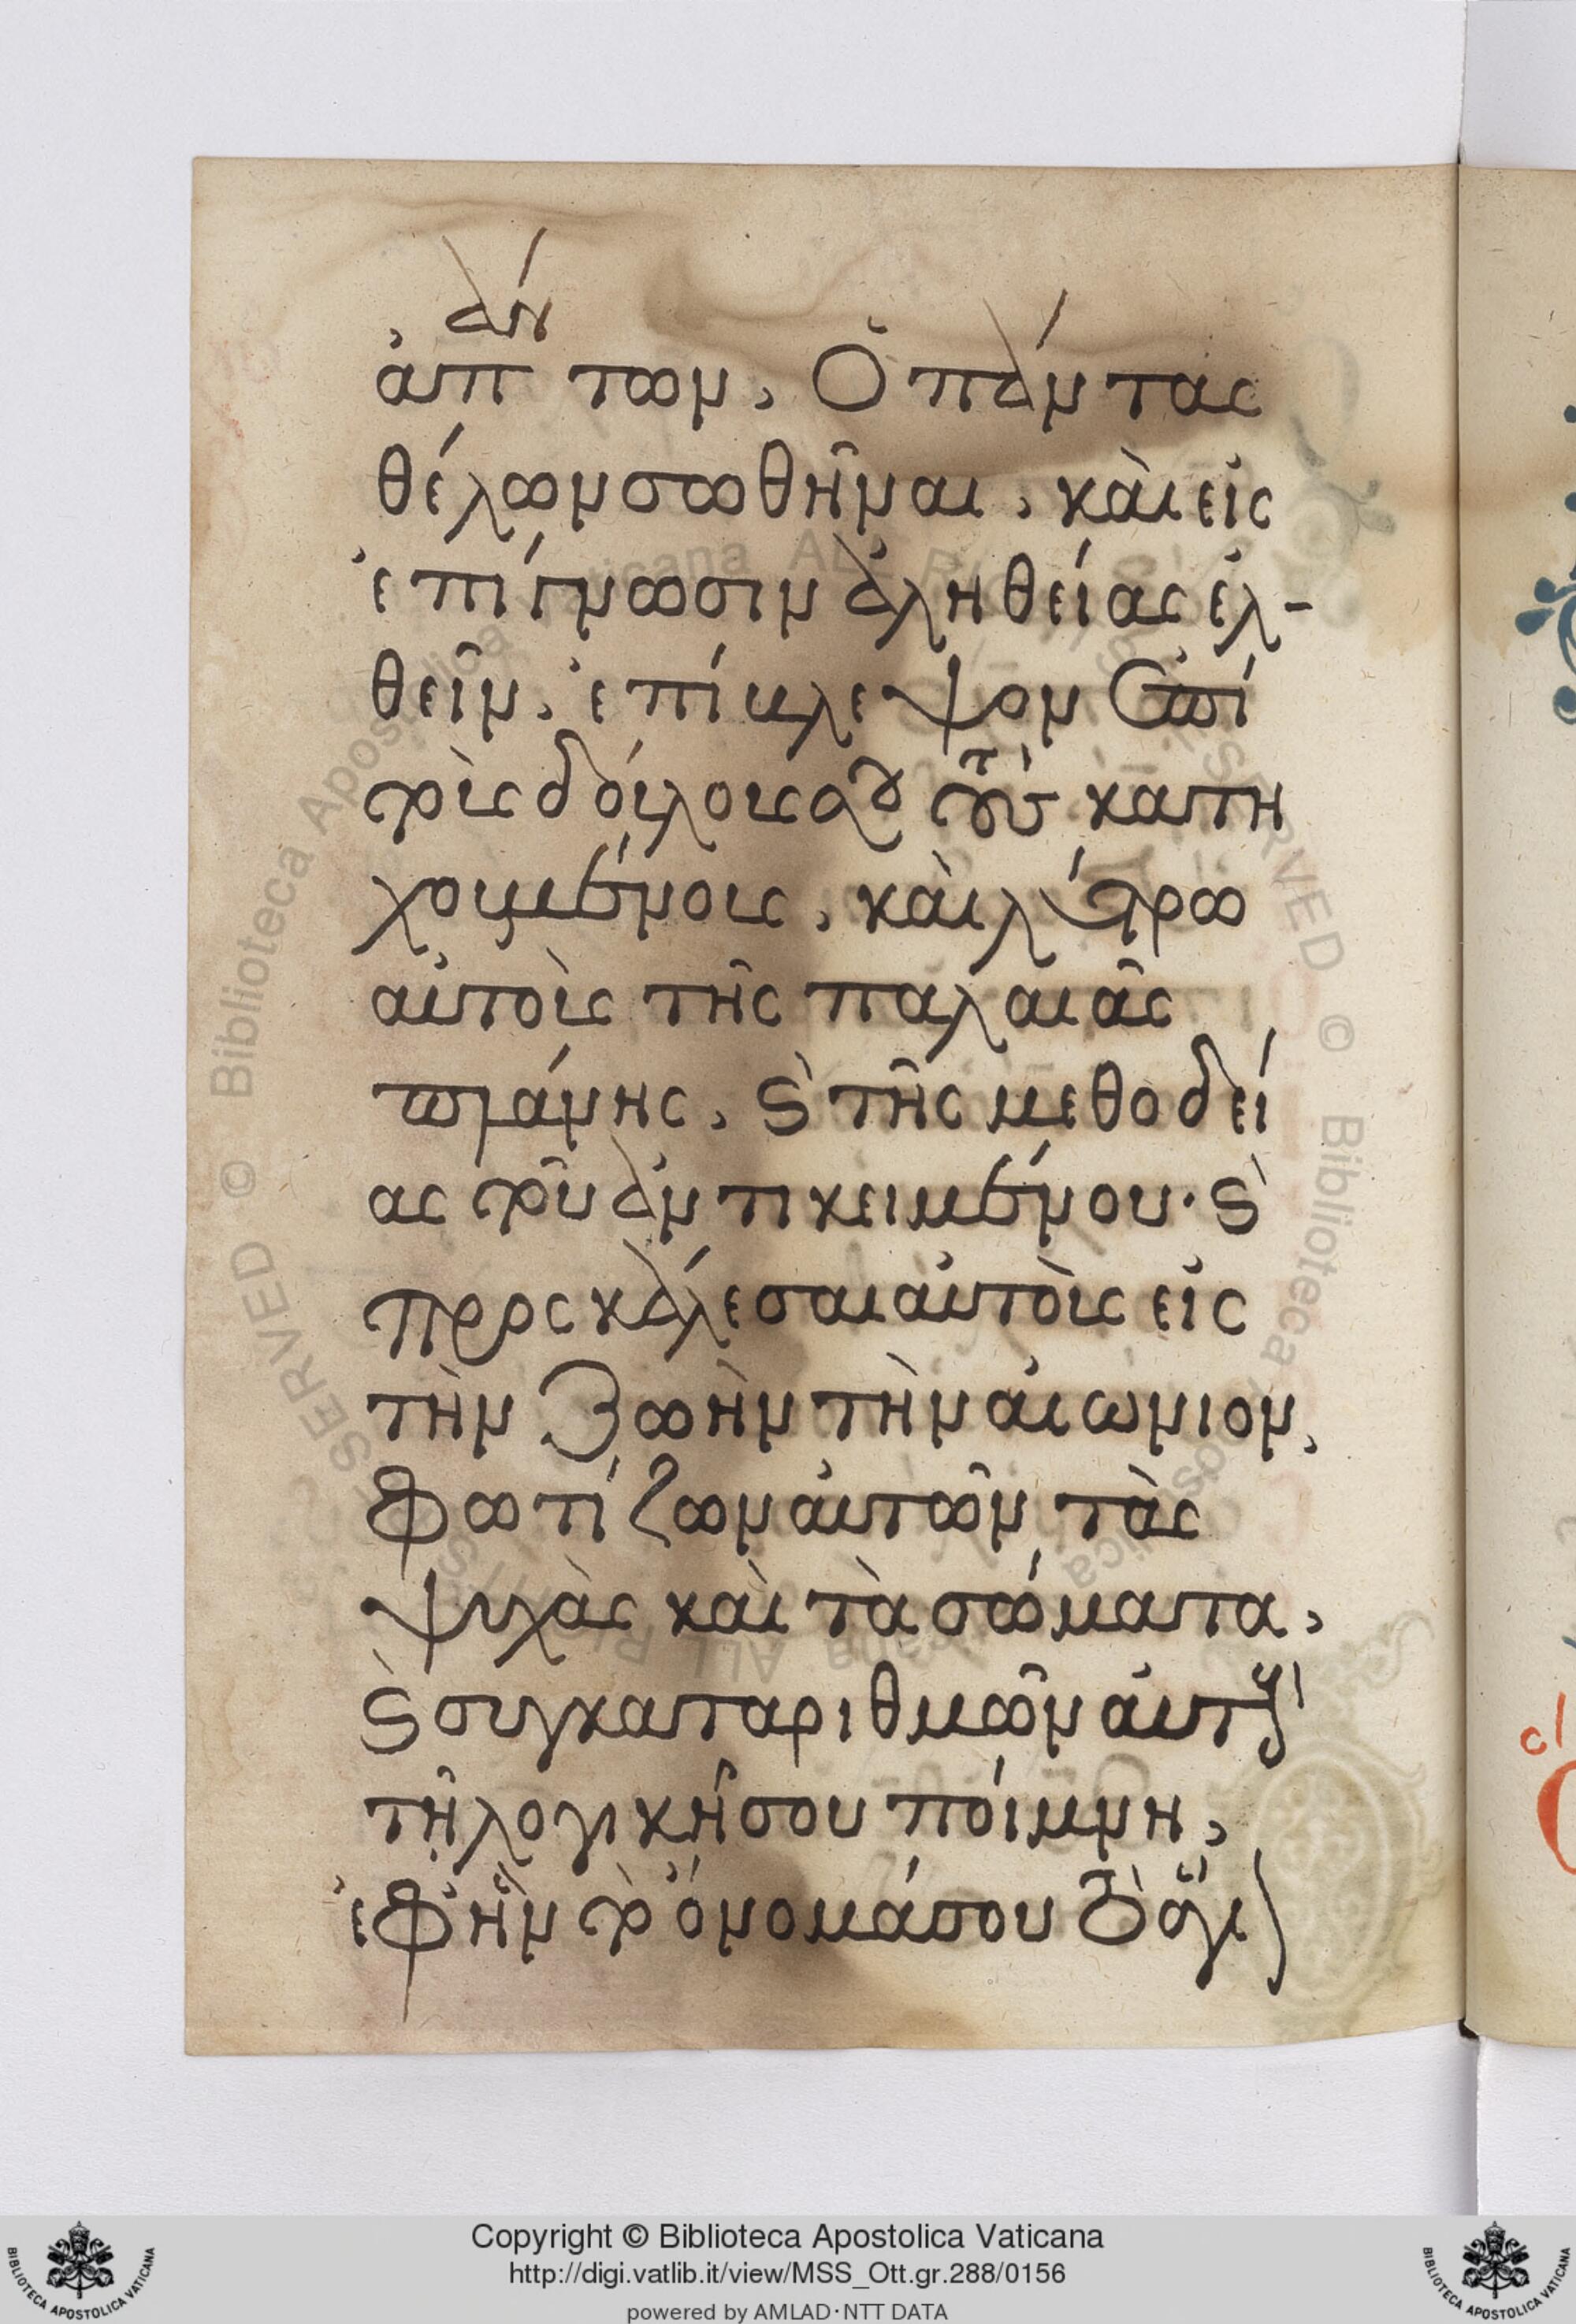 ἁπάντων, Ὁ πάντας
θέλων σωθῆναι, καὶ εἰς
ἐπίγνωσιν ἀληθείας ἐλ-
θεῖν, ἐπίβλεψον ἐπὶ
τοὺς δούλους σου τοὺς κατη
χουμένους, καὶ λύτρω
αὐτοὺς τῆς παλαιᾶς
πλάνης, καὶ τῆς μεθοδεί
ας τοῦ ἀντικειμένου· καὶ
προσκάλεσαι αὐτοὺς εἰς
τὴν ζωὴν τὴν αἰώνιον,
φωτίζων αὐτῶν τὰς
ψυχὰς καὶ τὰ σώματα,
καὶ συγκαταριθμῶν αὐτοὺς
τῇ λογικῇ σου ποίμνῃ,
ἐφ' ἣν τὸ ὄνομά σου τὸ ἅγι
Copyright © Biblioteca Apostolica Vaticana
http://digi.vatlib.it/view/MSS_Ott.gr.288/0156
powered by AMLAD·NTT DATA